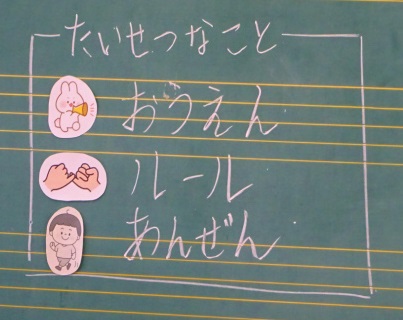 たいせつなこと
おうえん
ルール
あんぜん